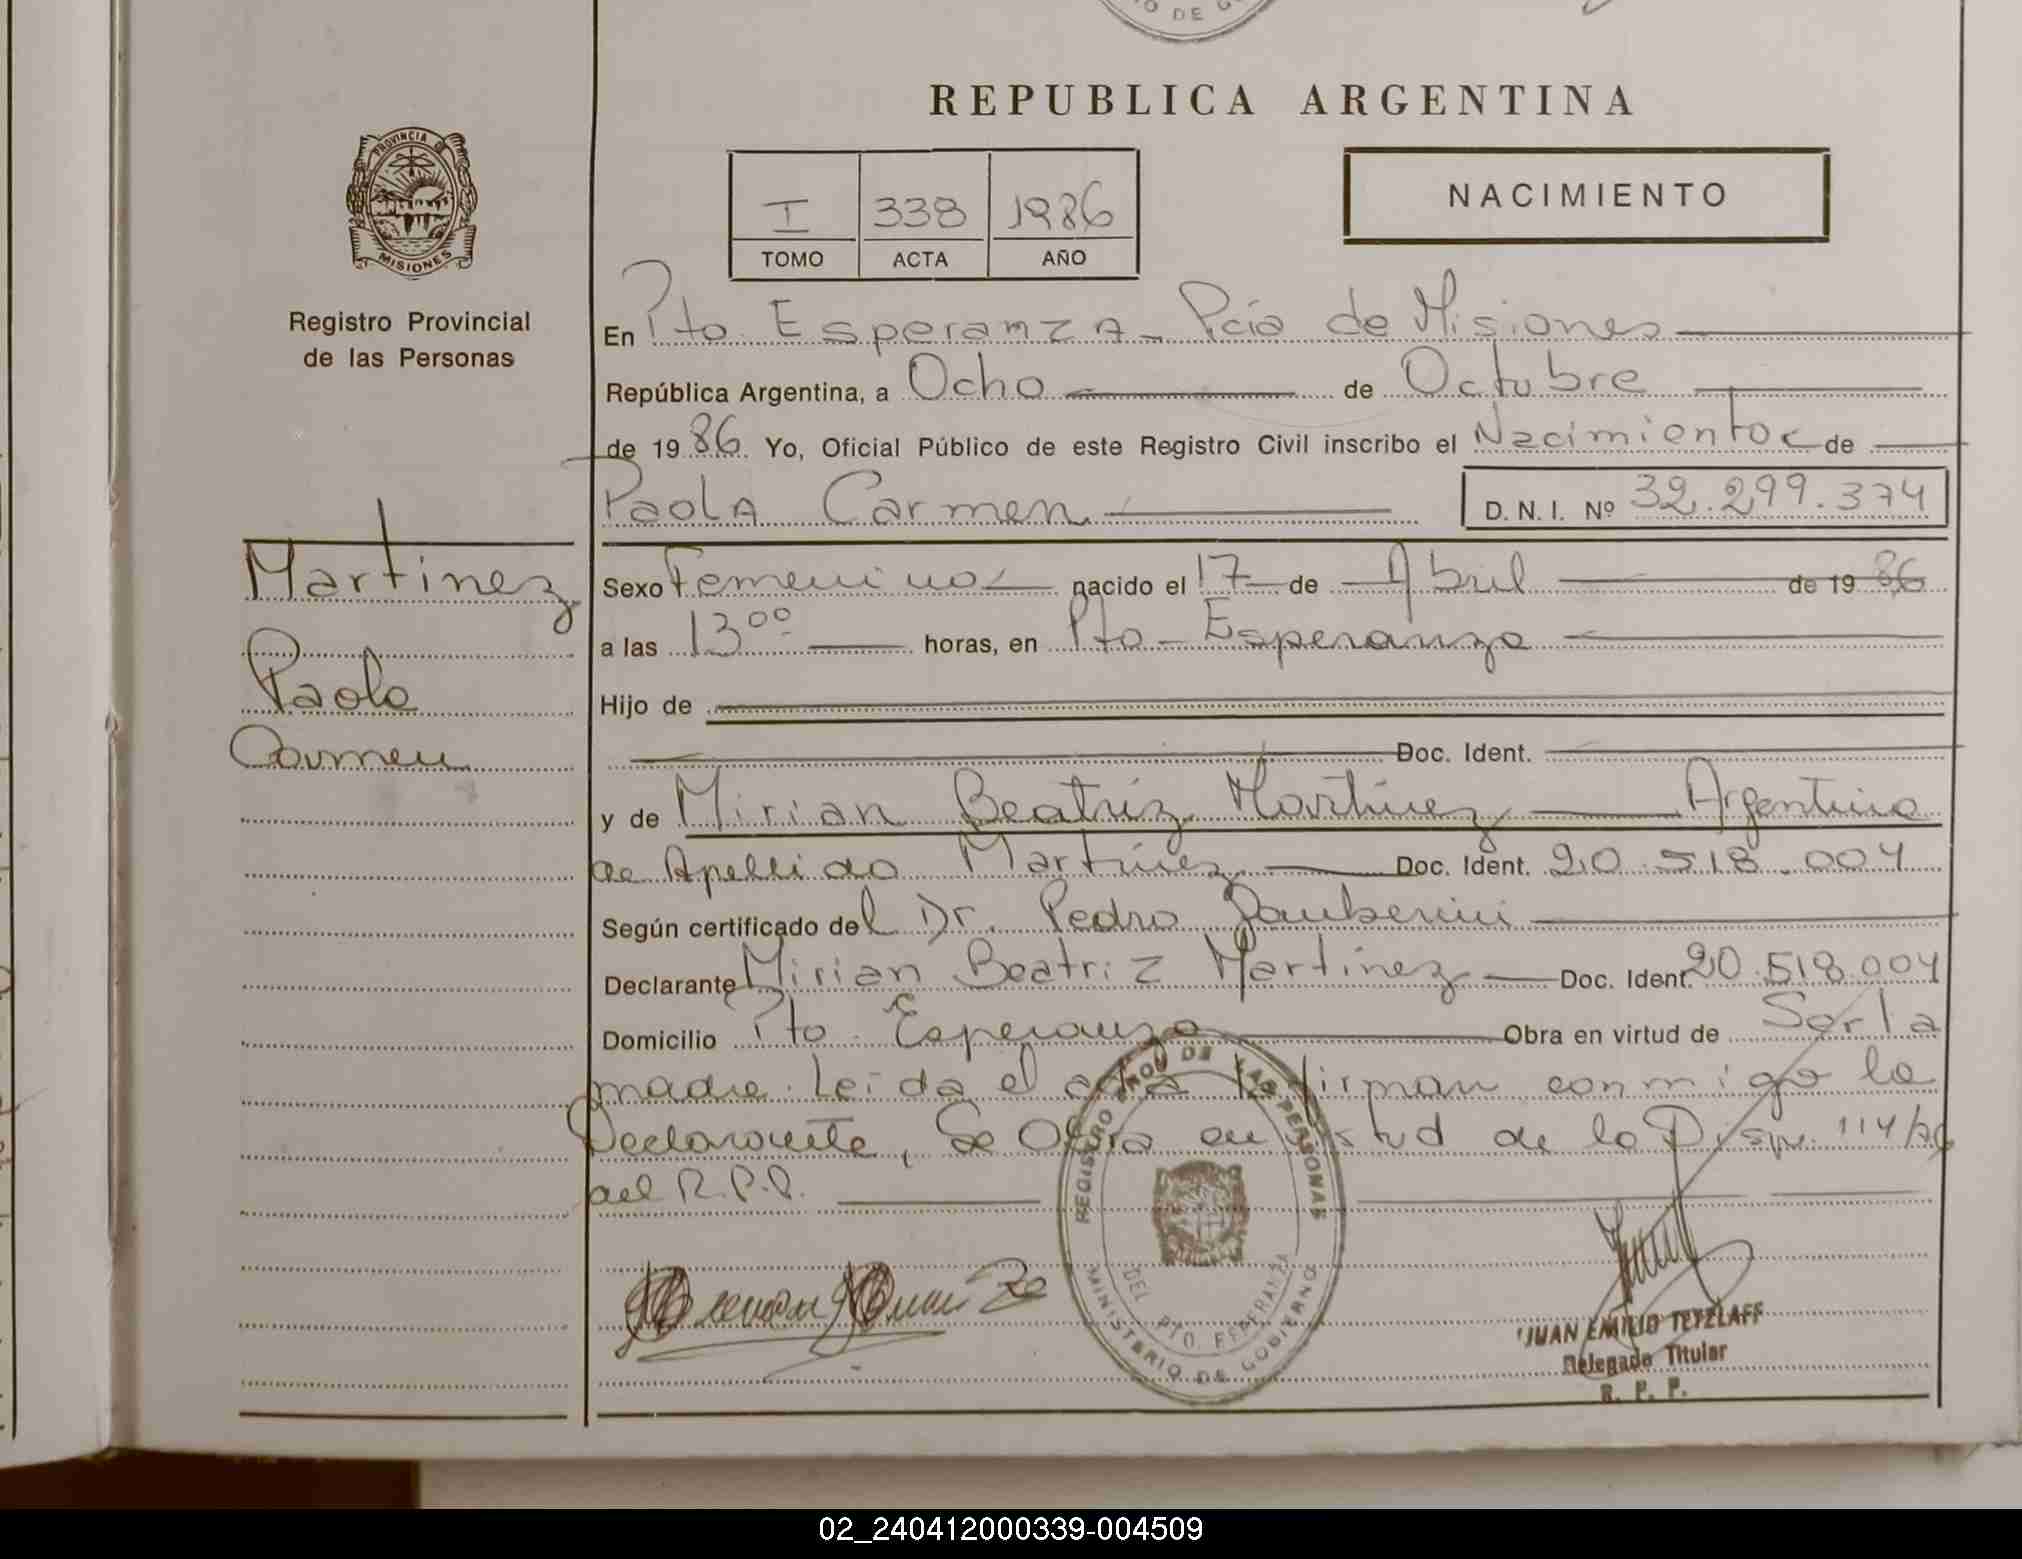 REPUBLICA ARGENTINA
PROVINCIA DE
MISIONES
Registro Provincial
de las Personas
I 338 1986
TOMO ACTA AÑO
NACIMIENTO
En Pto. Esperanza - Pcia de Misiones
República Argentina, a Ocho de Octubre
de 1986 Yo, Oficial Público de este Registro Civil inscribo el Nacimiento de
Paola Carmen D. N. I. Nº 32.299.374
Martinez
Paola
Carmen
Sexo Femenino nacido el 17 de Abril de 1986
a las 13⁰⁰ horas, en Pto - Esperanza
Hijo de
Doc. Ident.
y de Mirian Beatriz Martinez Argentina
de Apellido Martinez Doc. Ident. 20.518.004
Según certificado del Dr. Pedro
Declarante Mirian Beatriz Martinez Doc. Ident. 20.518.004
Domicilio Pto. Esperanza Obra en virtud de Ser la
madre. Leida el acta la firman conmigo la
Declarante, Se Obra en virtud de la Disp. 114/76
del R.P.P.
REGISTRO PROV DE LAS PERSONAS
DEL PTO. ESPERANZA
MINISTERIO DE GOBIERNO
JUAN EMILIO TEYZLAFF
Delegado Titular
R. P. P.
02_240412000339-004509